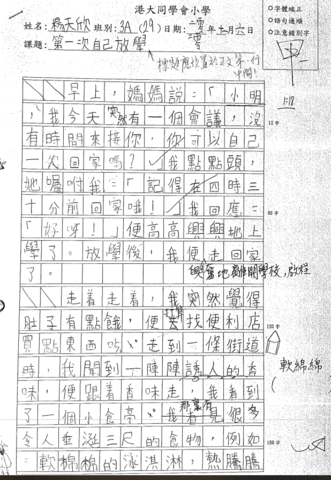 港大同學會小學
姓名：楊天欣 班別：3A (29) 日期：二零二三年十一月六日
課題：第二次自己放學
○字體端正
○語句通順
○注意錯別字
早上，媽媽說：「小明
，我今天突然有一個會議，沒
有時間來接你，你可以自己
一次回家嗎？」我點點頭，
她囑咐我：「記得在四時三
十分前回家哦！」我回應：
「好呀！」便高高興興地上
學了。放學後，我便走回家
了。
興奮地離開學校，啟程
走着走着，我突然覺得
肚子有點餓，便打算去找便利店
買點東西吃。走到一條街道
時，我聞到一陣陣誘人的香
味，便跟着香味走，我看到
了一個小食亭。我看見很多
那裏有
令人垂涎三尺的食物，例如
軟棉棉的冰淇淋，熱騰騰
軟綿綿